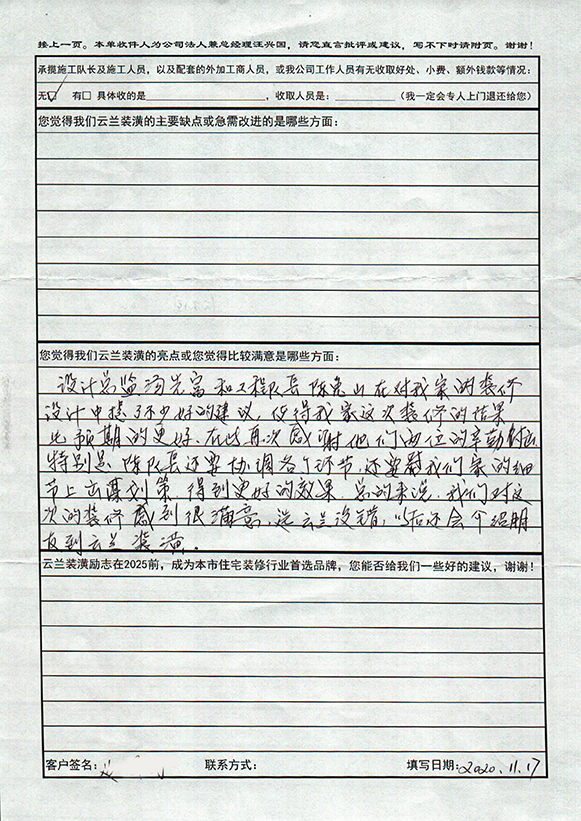 接上一页。本单收件人为公司法人兼总经理汪兴国，请您直言批评或建议，写不下时请附页。谢谢！
承揽施工队长及施工人员，以及配套的外加工商人员，或我公司工作人员有无收取好处、小费、额外钱款等情况：
无☑ 有□ 具体收的是＿＿＿＿＿＿，收取人员是：＿＿＿＿（我一定会专人上门退还给您）
您觉得我们云兰装潢的主要缺点或急需改进的是哪些方面：
您觉得我们云兰装潢的亮点或您觉得比较满意是哪些方面：
设计总监汤光富和工程队长陈兔山在对我家的装修
设计中提了不少好的建议，使得我家这次装修的结果
比预期的更好，在此再次感谢他们两位的辛勤付出
特别是陈队长还要协调各个环节，还要对我们家的细
节上出谋划策，得到更好的效果。总的来说，我们对这
次的装修感到很满意，选云兰没错，以后还会介绍朋
友到云兰装潢。
云兰装潢励志在2025前，成为本市住宅装修行业首选品牌，您能否给我们一些好的建议，谢谢！
客户签名： 联系方式： 填写日期：2020.11.17